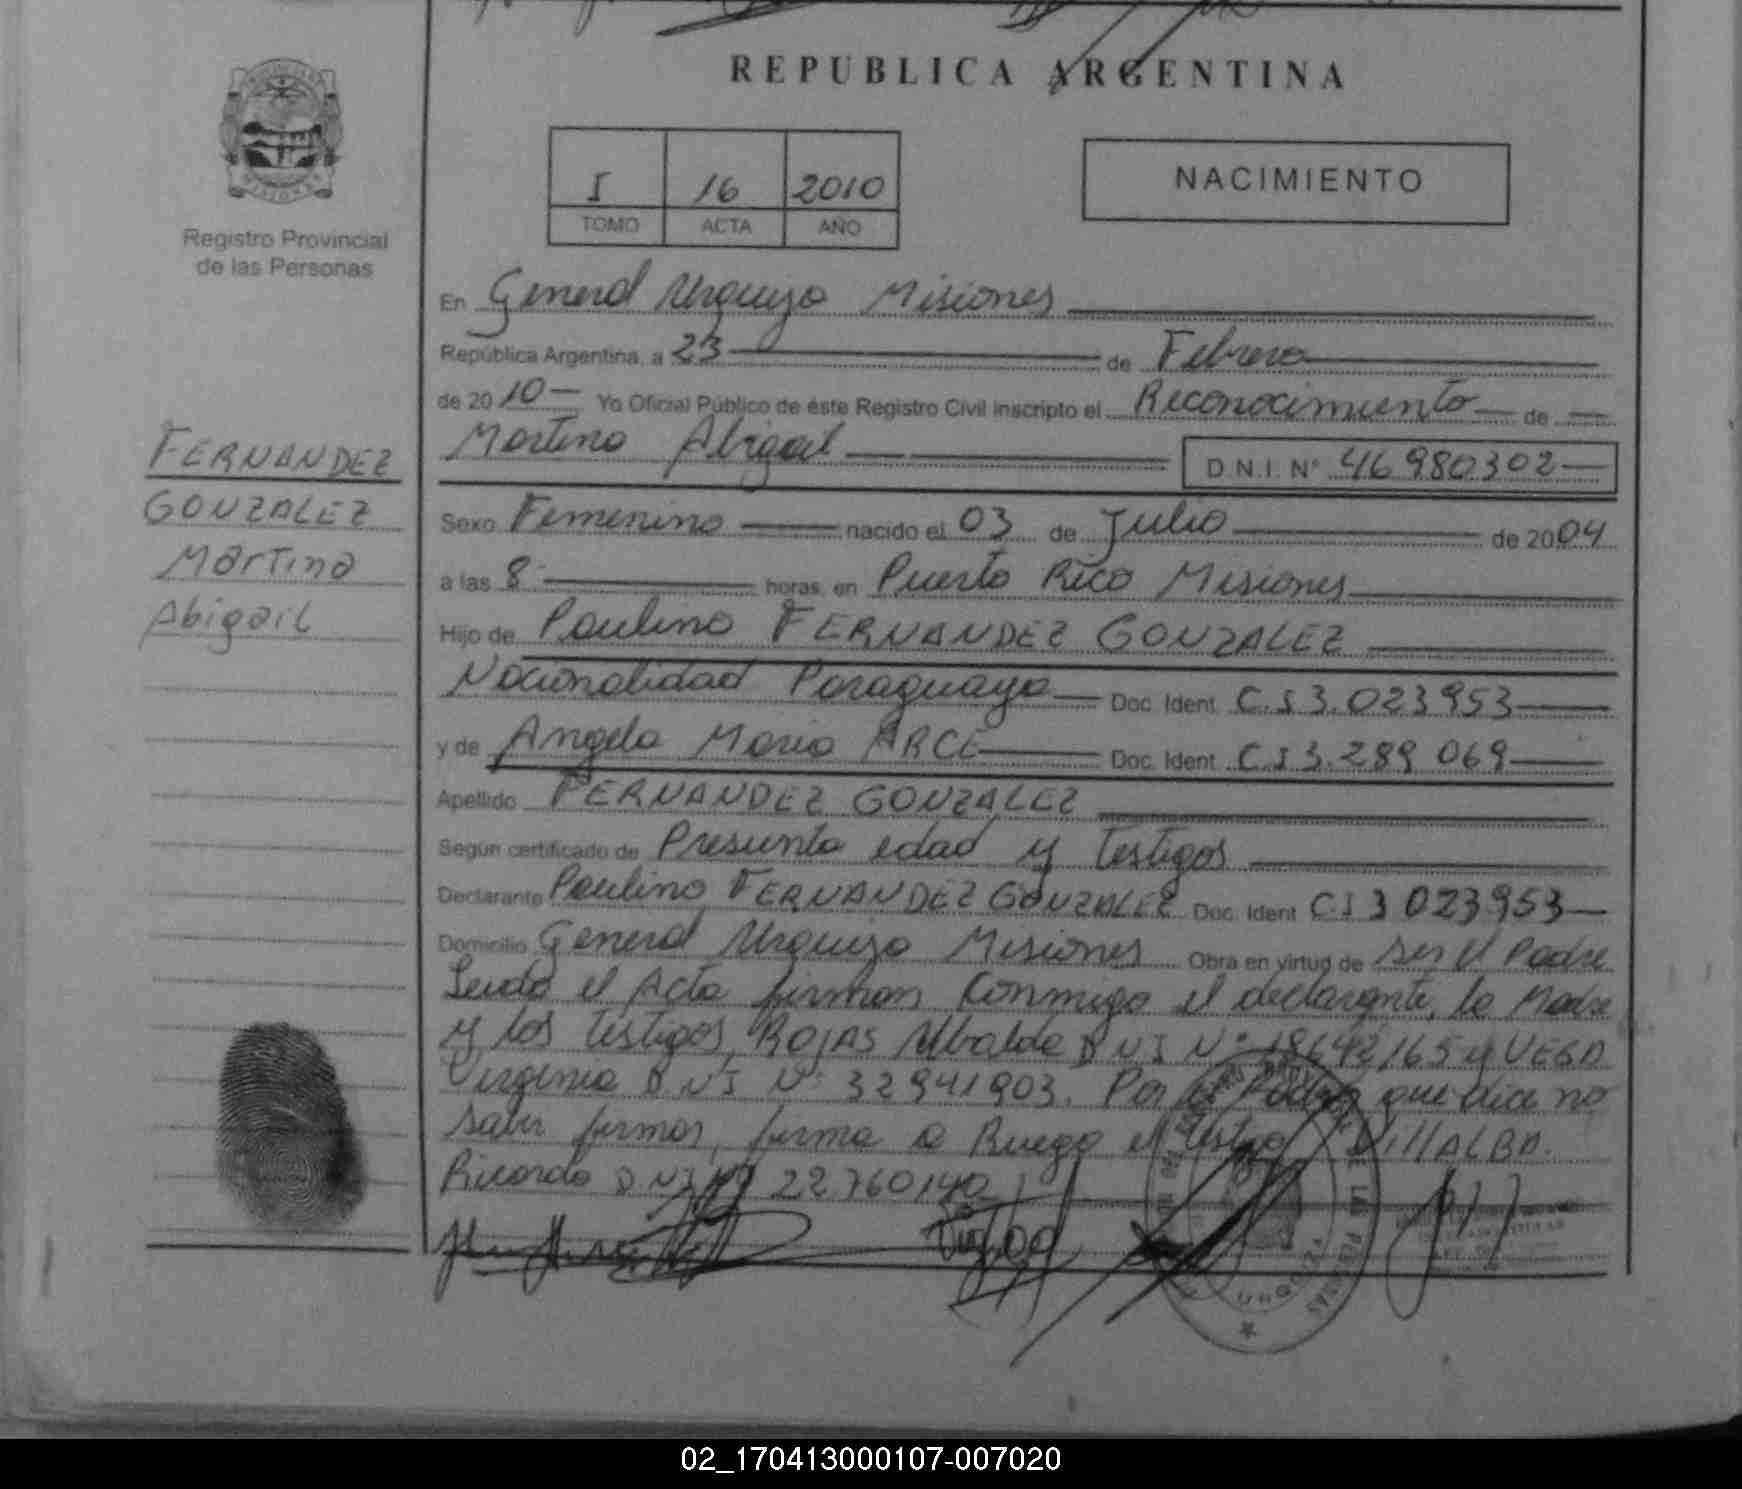 REPUBLICA ARGENTINA
I 16 2010
TOMO ACTA AÑO
NACIMIENTO
Registro Provincial
de las Personas
FERNANDEZ
GONZALEZ
Martina
Abigail
En General Urquiza Misiones
República Argentina, a 23 de Febrero
de 2010 Yo Oficial Público de éste Registro Civil inscripto el Reconocimiento de
Martina Abigail D.N.I. Nº 46980302
Sexo Femenino nacido el 03 de Julio de 2004
a las 8 horas, en Puerto Rico Misiones
Hijo de Paulino FERNANDEZ GONZALEZ
Nacionalidad Paraguaya Doc. Ident. C.I 3.023953
y de Angela Maria ARCE Doc. Ident. C I 3.289 069
Apellido FERNANDEZ GONZALEZ
Según certificado de Presunta edad y Testigos
Declarante Paulino FERNANDEZ GONZALEZ Doc. Ident. CI 3 023953
Domicilio General Urquiza Misiones Obra en virtud de ser el Padre
Leida el Acta firman Conmigo el declarante, la Madre
y los testigos, ROJAS Ubalda D N I Nº 18642165 y VEGA
Virginia D N I Nº 32941903. Por la Padre que dice no
saber firmar, firma a Ruego el testigo VillALBA.
Ricardo D N I Nº 22760140
02_170413000107-007020